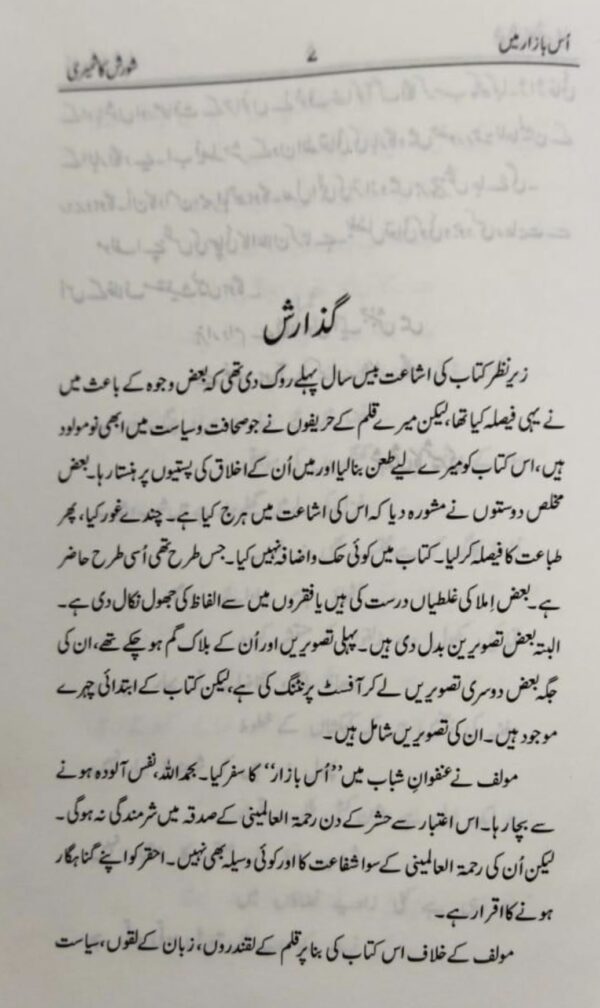 اُس بازار میں
7
شورش کاشمیری
گذارش
زیرِ نظر کتاب کی اشاعت بیس سال پہلے روک دی تھی کہ بعض وجوہ کے باعث میں
نے یہی فیصلہ کیا تھا، لیکن میرے قلم کے حریفوں نے جو صحافت و سیاست میں ابھی نو مولود
ہیں، اس کتاب کو میرے لیے طعن بنا لیا اور میں اُن کے اخلاق کی پستیوں پر ہنستا رہا۔ بعض
مخلص دوستوں نے مشورہ دیا کہ اس کی اشاعت میں ہرج کیا ہے۔ چندے غور کیا، پھر
طباعت کا فیصلہ کر لیا۔ کتاب میں کوئی حک و اضافہ نہیں کیا۔ جس طرح تھی اُسی طرح حاضر
ہے۔ بعض اِملا کی غلطیاں درست کی ہیں یا فقروں میں سے الفاظ کی جھول نکال دی ہے۔
البتہ بعض تصویرین بدل دی ہیں۔ پہلی تصویریں اور اُن کے بلاک گم ہو چکے تھے، ان کی
جگہ بعض دوسری تصویریں لے کر آفسٹ پرنٹنگ کی ہے، لیکن کتاب کے ابتدائی چہرے
موجود ہیں۔ ان کی تصویریں شامل ہیں۔
مولف نے عنفوانِ شباب میں ”اُس بازار“ کا سفر کیا۔ بحمد اللہ، نفس آلودہ ہونے
سے بچا رہا۔ اس اعتبار سے حشر کے دن رحمۃ العالمینی کے صدقہ میں شرمندگی نہ ہوگی۔
لیکن اُن کی رحمۃ العالمینی کے سوا شفاعت کا اور کوئی وسیلہ بھی نہیں۔ احقر کو اپنے گناہگار
ہونے کا اقرار ہے۔
مولف کے خلاف اس کتاب کی بنا پر قلم کے لقندروں، زبان کے لقوں، سیاست